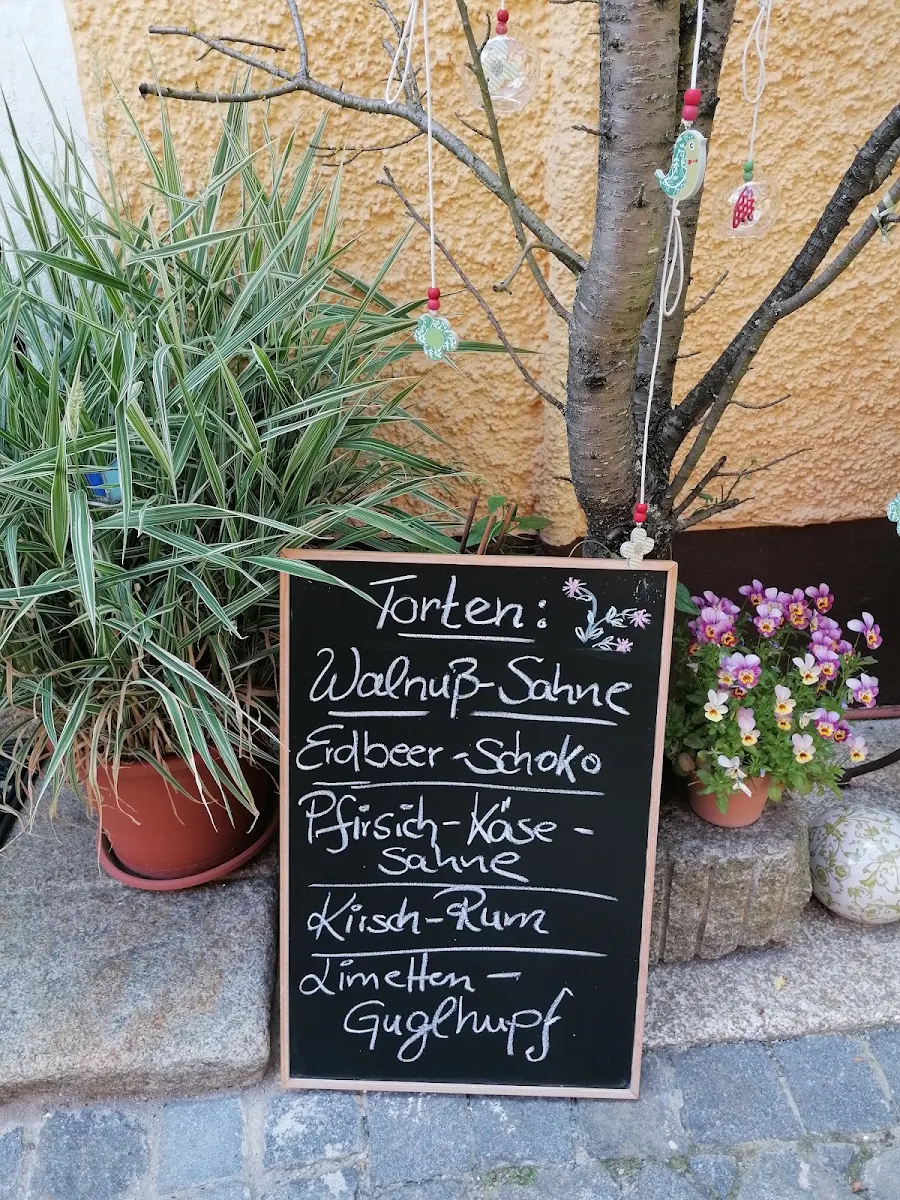 Torten:
Walnuß-Sahne
Erdbeer-Schoko
Pfirsich-Käse-
sahne
Kirsch-Rum
Limetten-
Guglhupf